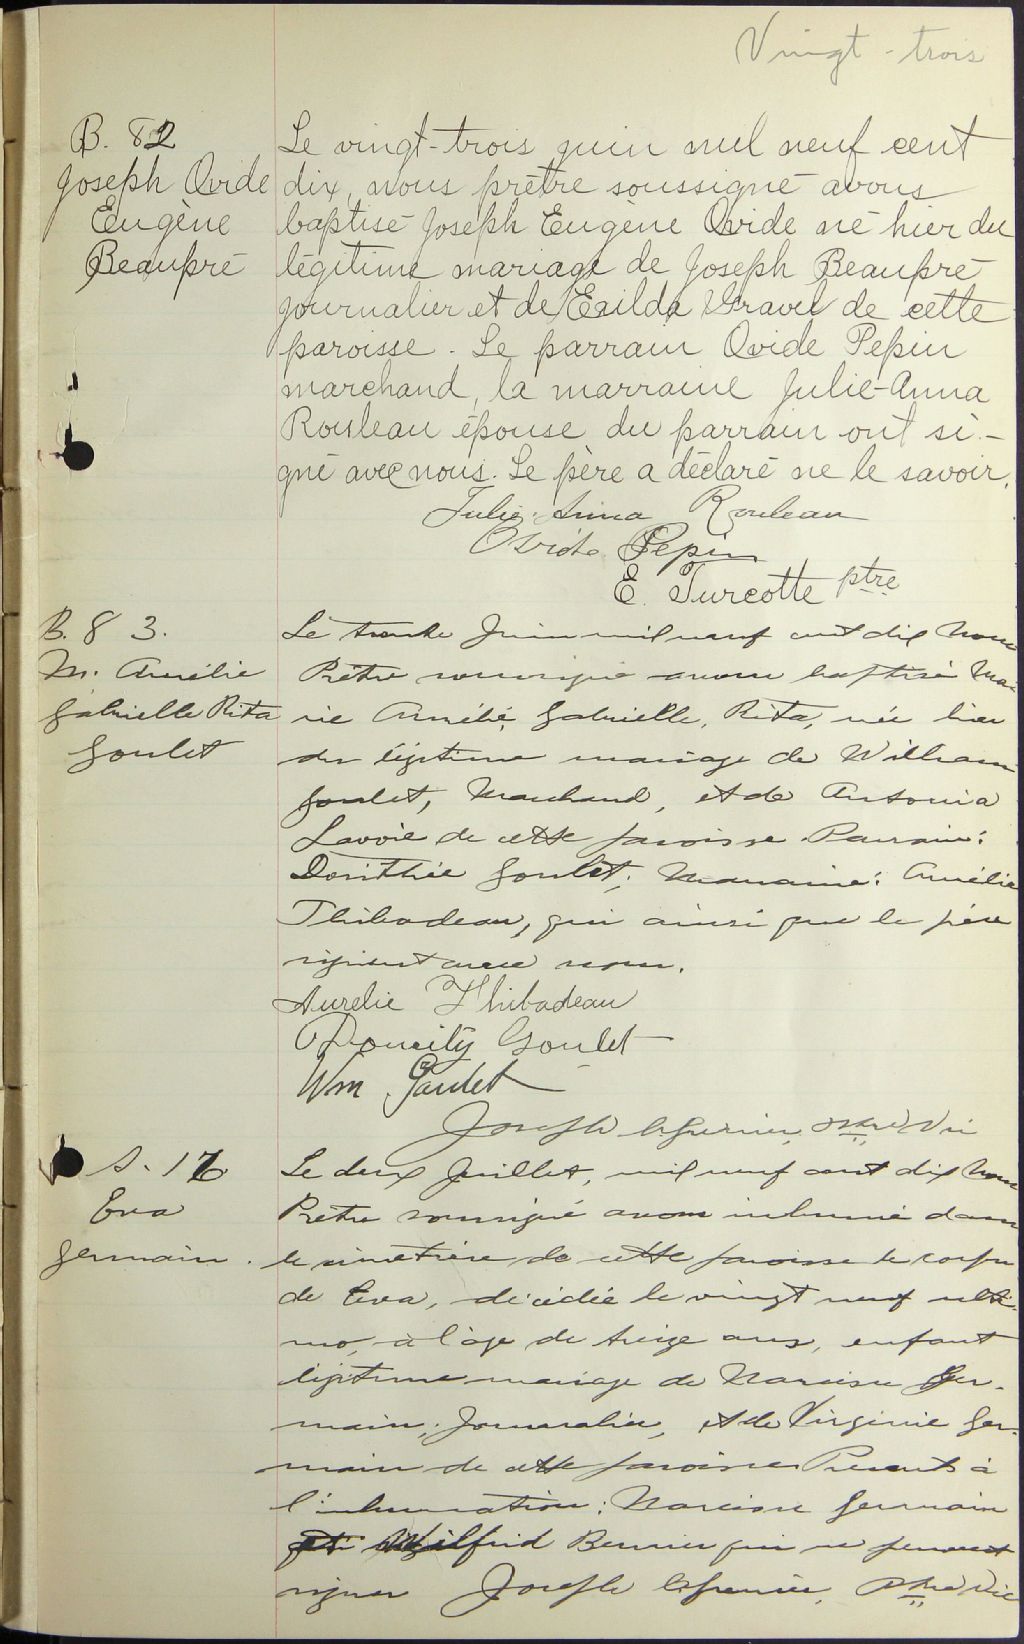 Vingt-trois
B. 82
Joseph Ovide
Eugène
Beaupré
Le vingt-trois juin mil neuf cent
dix, nous prêtre soussigné avons
baptisé Joseph Eugène Ovide né hier du
légitime mariage de Joseph Beaupré
journalier et de Exilda Gravel de cette
paroisse. Le parrain Ovide Pepin
marchand, la marraine Julie-Anna
Rouleau épouse du parrain ont si-
gné avec nous. Le père a déclaré ne le savoir.
Julie-Anna Rouleau
Ovide Pepin
E. Turcotte ptre
B. 83.
M. Amélie
Gabrielle Rita
Goulet
Le trente Juin mil neuf cent dix Nous
Prêtre soussigné avons baptisé Ma-
rie Amélie, Gabrielle, Rita, née hier
du légitime mariage de William
Goulet, Marchand, et de Antonia
Lavoie de cette paroisse Parrain:
Goulet; Marraine: Amélie
Thibodeau, qui ainsi que le père
signent avec nous.
Aurelie Thibadeau
Goulet
Wm Goulet
Joseph Ptre Vic
S. 16
Eva
Germain.
Le deux Juillet, mil neuf cent dix Nous
Prêtre soussigné avons inhumé dans
le cimetière de cette paroisse le corps
de Eva, décédée le vingt neuf ulti-
mo, à l'âge de treize ans, enfant
légitime mariage de Narcisse Ger-
main, Journalier, et de Virginie Ger-
main de cette paroisse Présents à
l'inhumation: Narcisse Germain
et Wilfrid Bernier qui ne peuvent
signer Joseph Ptre Vic